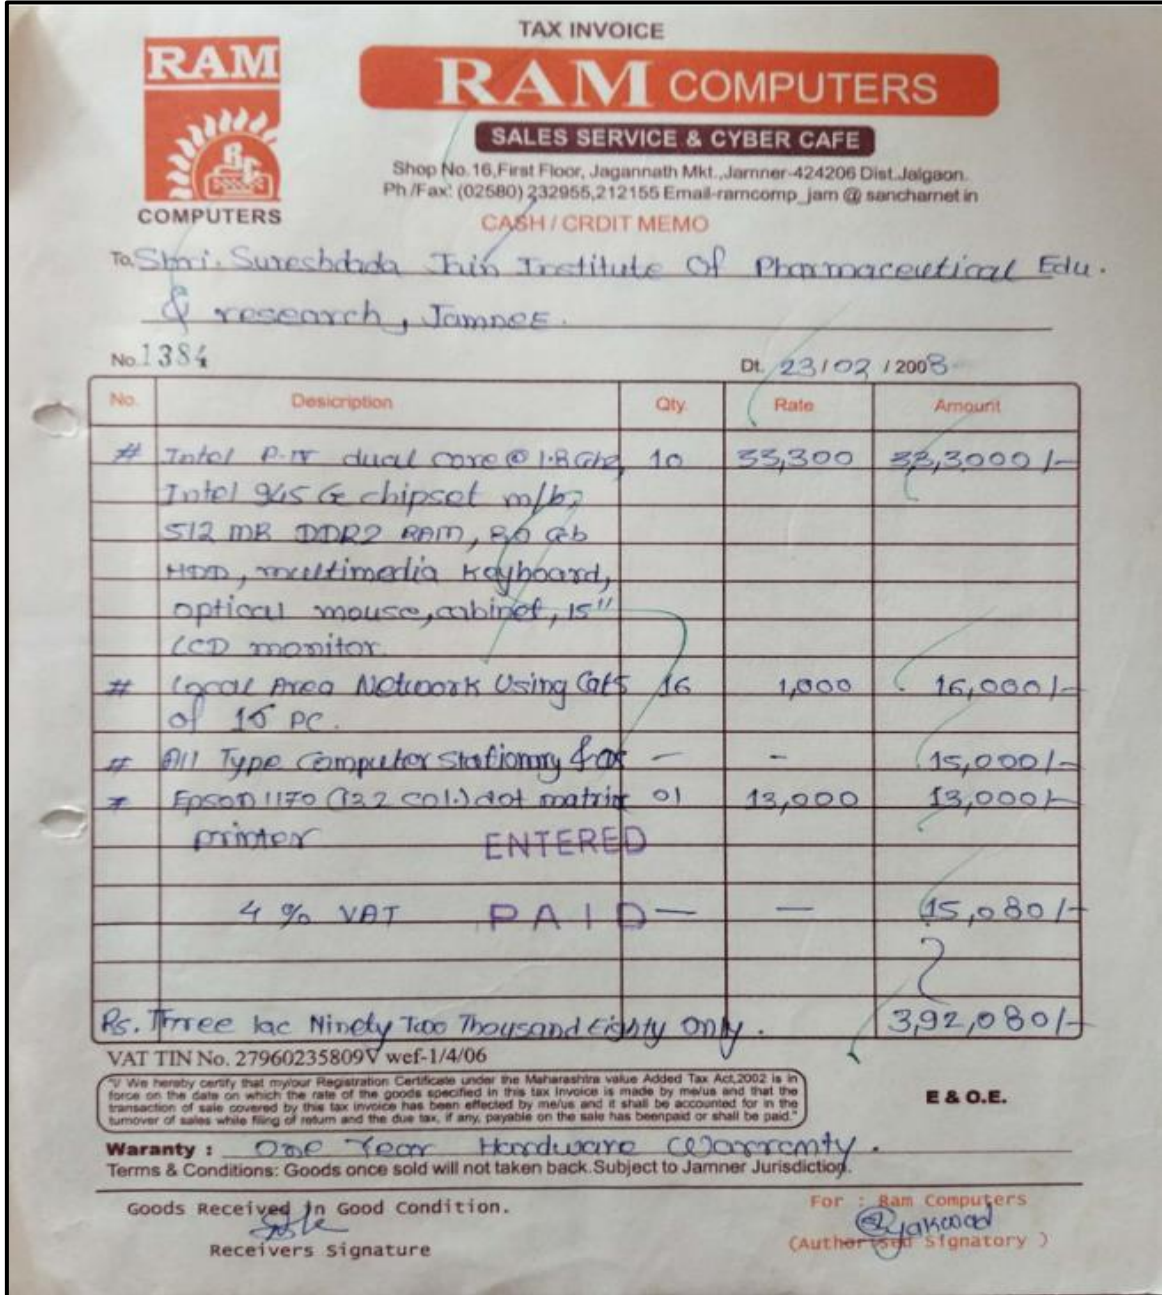 TAX INVOICE
RAM
COMPUTERS
RAM COMPUTERS
SALES SERVICE & CYBER CAFE
Shop No.16,First Floor, Jagannath Mkt.,Jamner-424206 Dist.Jalgaon.
Ph /Fax: (02580) 232955,212155 Email-ramcomp_jam @ sancharnet in
CASH / CRDIT MEMO
To, Shri. Sureshdada Jain Institute Of Pharmaceutical Edu.
& research, Jamner.
No. 1384 Dt. 23 / 02 / 2008
No. Desicription Qty. Rate Amount
# Intel P-IV dual core @ 1.8 Ghz, 10 33,300 33,3000/-
Intel 945 G chipset m/b,
512 MB DDR2 RAM, 80 Gb
HDD, multimedia Keyboard,
optical mouse, cabinet, 15"
LCD monitor.
# Local Area Network Using Cat5 16 1,000 16,000/-
of 16 PC.
# All Type Computer Stationary - - 15,000/-
# Epson 1170 (132 col.) dot matrix 01 13,000 13,000/-
printer ENTERED
4 % VAT PAID — — 15,080/-
Rs. Three lac Ninety Two Thousand Eighty Only. 3,92,080/-
VAT TIN No. 27960235809V wef-1/4/06
"I/ We hereby certify that my/our Registration Certificate under the Maharashtra value Added Tax Act,2002 is in
force on the date on which the rate of the goods specified in this tax Invoice is made by me/us and that the
transaction of sale covered by this tax invoice has been effected by me/us and it shall be accounted for in the
turnover of sales while filing of return and the due tax, if any, payable on the sale has beenpaid or shall be paid."
E & O.E.
Waranty : One Year Hardware Warranty.
Terms & Conditions: Goods once sold will not taken back.Subject to Jamner Jurisdiction.
Goods Received In Good Condition.
Receivers Signature
For : Ram Computers
(Authorised Signatory )